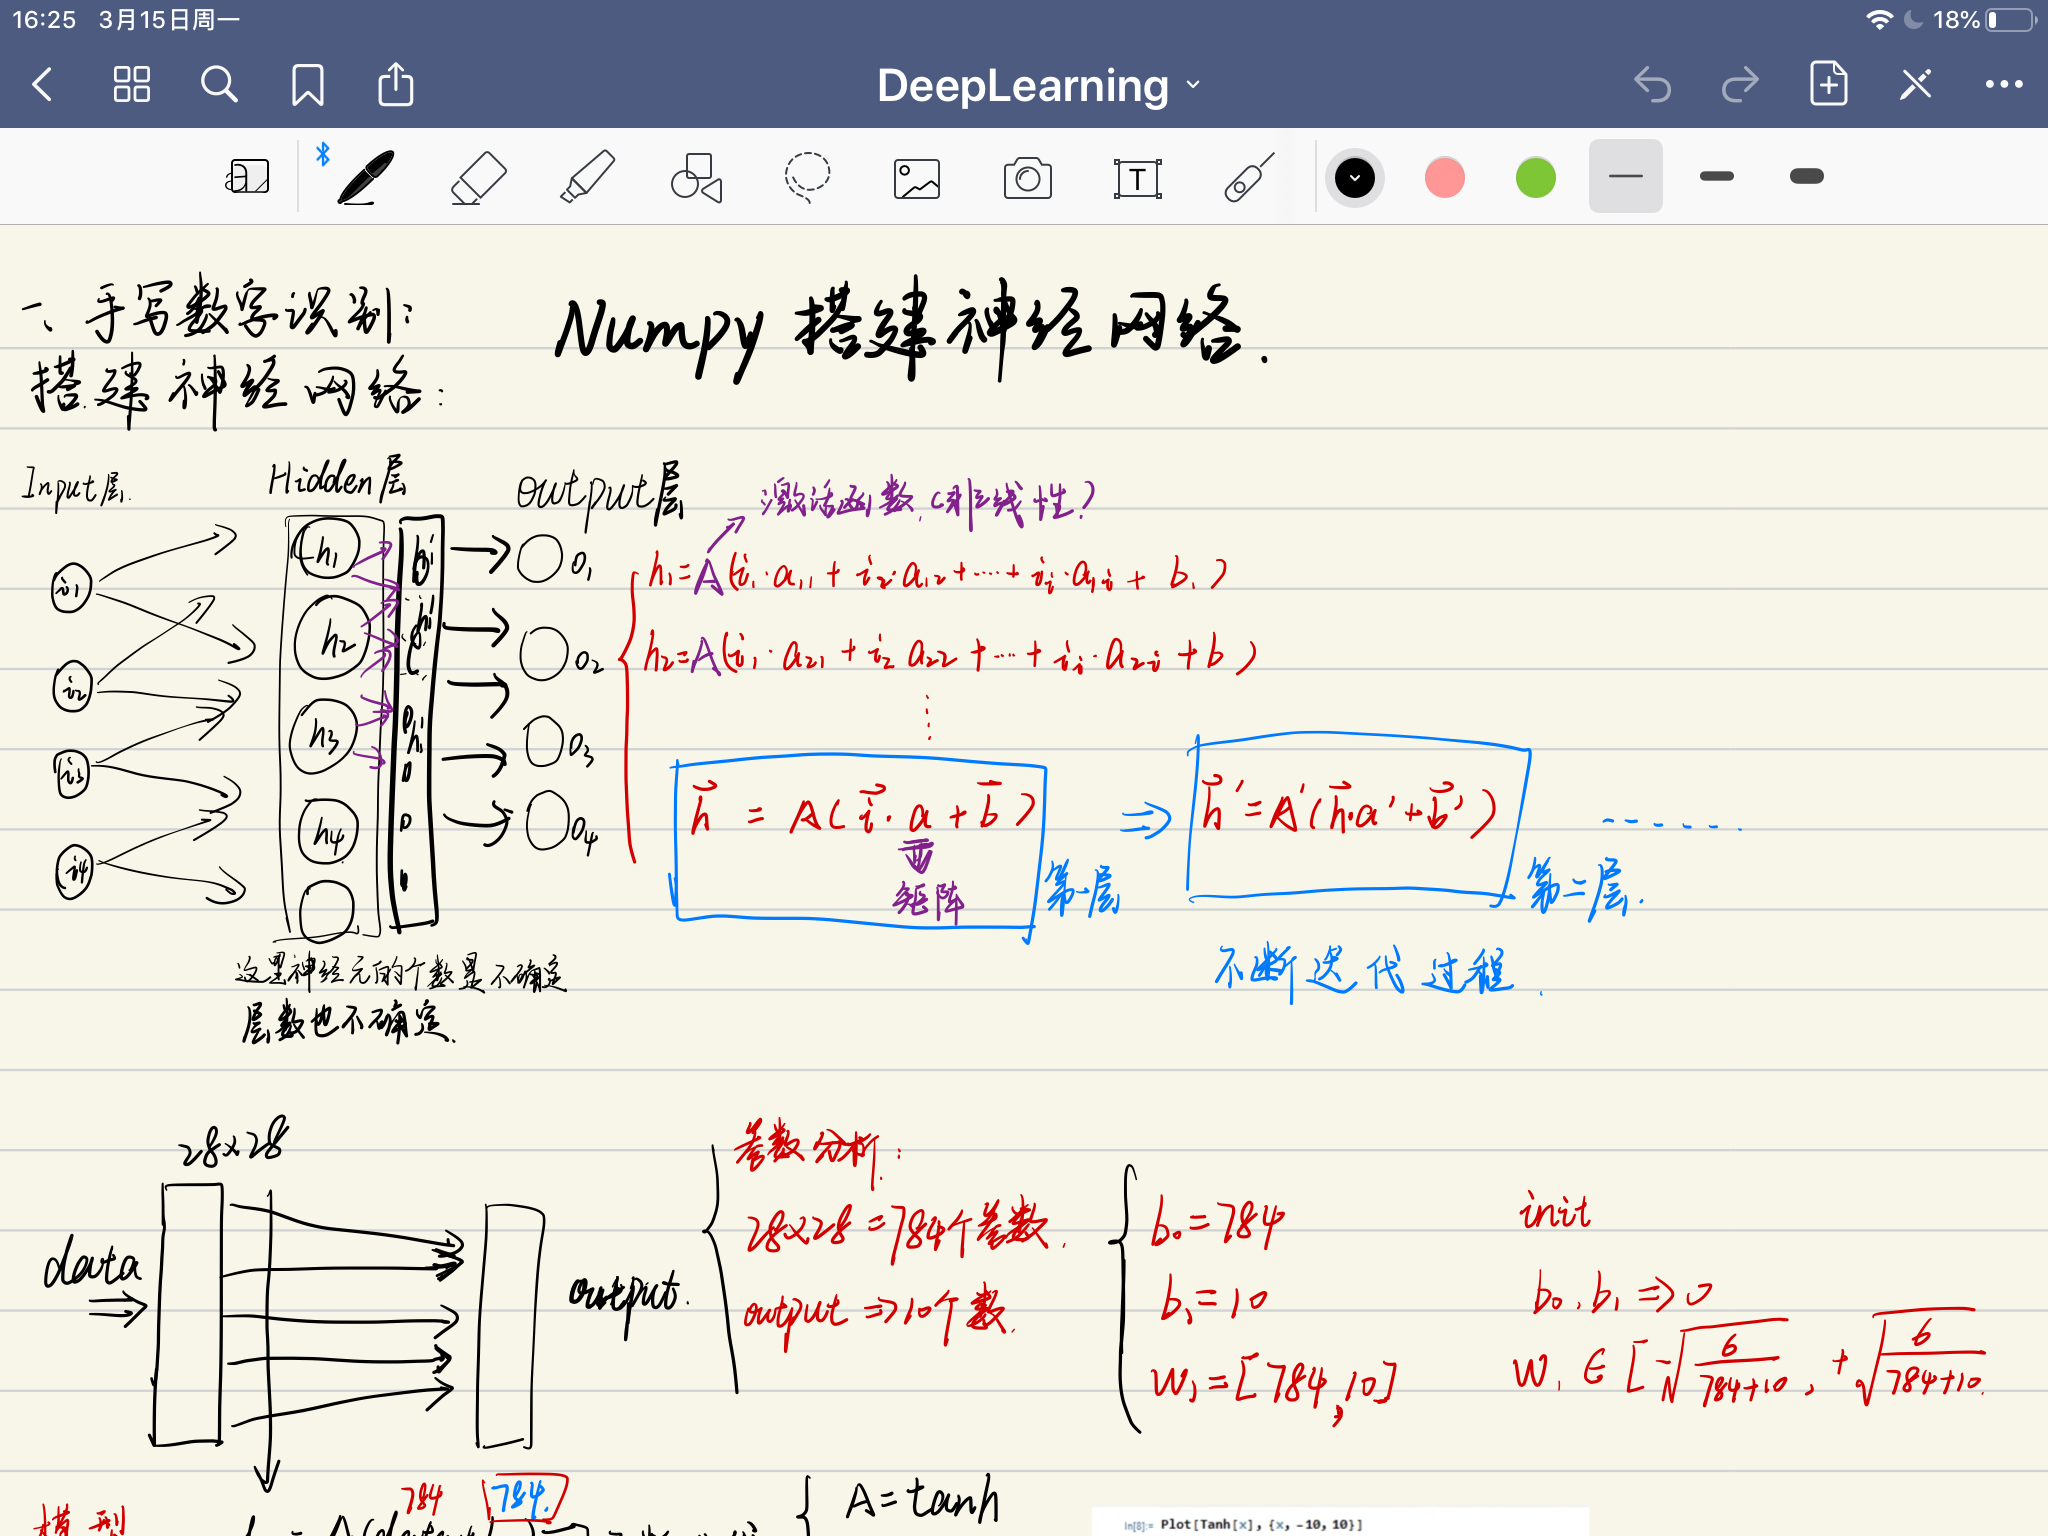 16:25 3月15日周一
18%
DeepLearning
T
一、手写数字识别:
Numpy 搭建神经网络.
搭建神经网络:
Input层.
Hidden层
output层
激活函数.(非线性?
i₁
i₂
i₃
i₄
h₁
h₂
h₃
h₄
O₁
O₂
O₃
O₄
h₁=A(i₁·a₁₁ + i₂·a₁₂+····+ iᵢ·a₁ᵢ + b₁)
h₂=A(i₁·a₂₁ + i₂ a₂₂ +···+ iᵢ·a₂ᵢ + b)
h⃗ = A(i⃗·a + b⃗)
矩阵
第一层
⇒
h⃗'=A'(h⃗·a'+b⃗')
第二层.
······
不断迭代过程.
这里神经元的个数是不确定
层数也不确定.
28×28
data
output.
参数分析:
28×28=784个参数.
output ⇒10个数.
b₀=784
b₁=10
W₁=[784,10]
init
b₀,b₁ ⇒ 0
W₁ ∈ [-√(6/(784+10)), +√(6/(784+10))
模型
784
784.
A=tanh
In[8]:= Plot[Tanh[x], {x, -10, 10}]